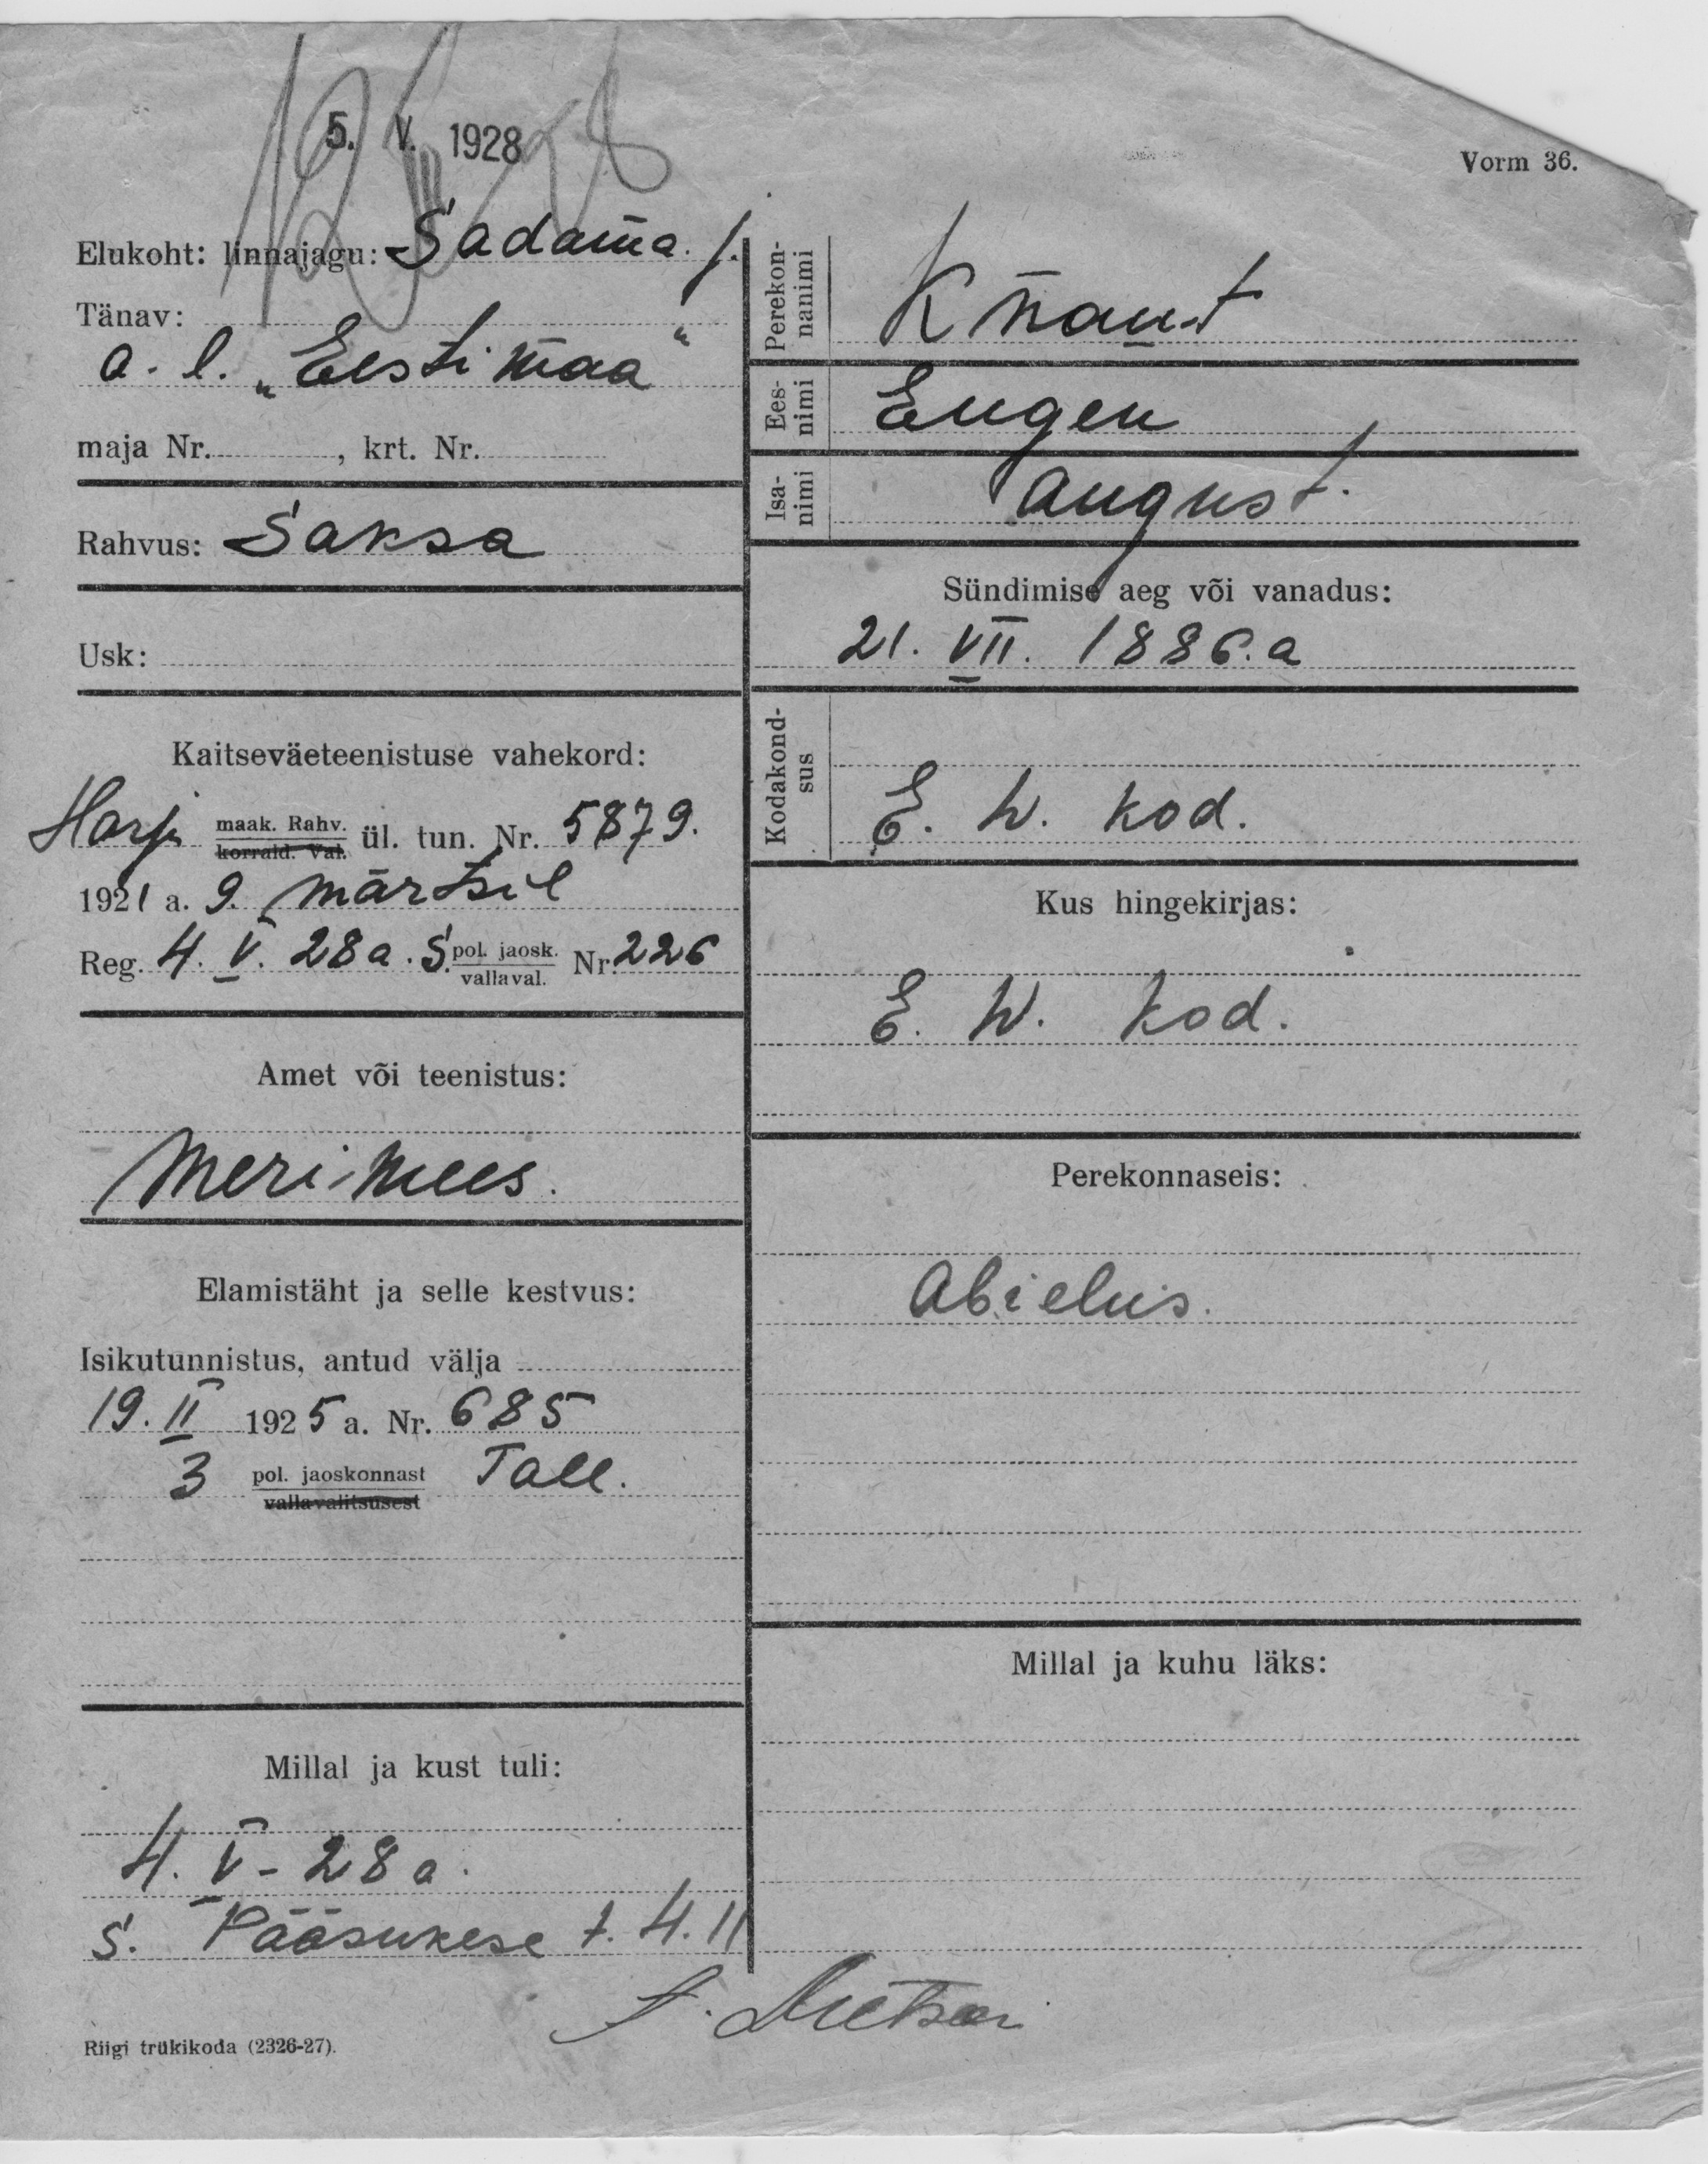 5. V. 1928
Vorm 36.
Elukoht: linnajagu: Sadama j.
Tänav:
a. l. „Eestimaa"
maja Nr. , krt. Nr.
Rahvus: Saksa
Usk:
Kaitseväeteenistuse vahekord:
Harju maak. Rahv. korrald. Val. ül. tun. Nr. 5879.
1921 a. 9. märtsil
Reg. 4. V. 28 a. S. pol. jaosk. vallaval. Nr. 226
Amet või teenistus:
Merimees.
Elamistäht ja selle kestvus:
Isikutunnistus, antud välja
19. II 1925 a. Nr. 685
3 pol. jaoskonnast vallavalitsusest Tall.
Millal ja kust tuli:
4. V - 28 a.
S. Pääsukese t. 4. 11
Riigi trükikoda (2326-27).
Perekonnanimi
Knaut
Eesnimi
Eugen
Isanimi
August.
Sündimise aeg või vanadus:
21. VII. 1886. a
Kodakondsus
E. W. kod.
Kus hingekirjas:
E. W. kod.
Perekonnaseis:
Abielus.
Millal ja kuhu läks: